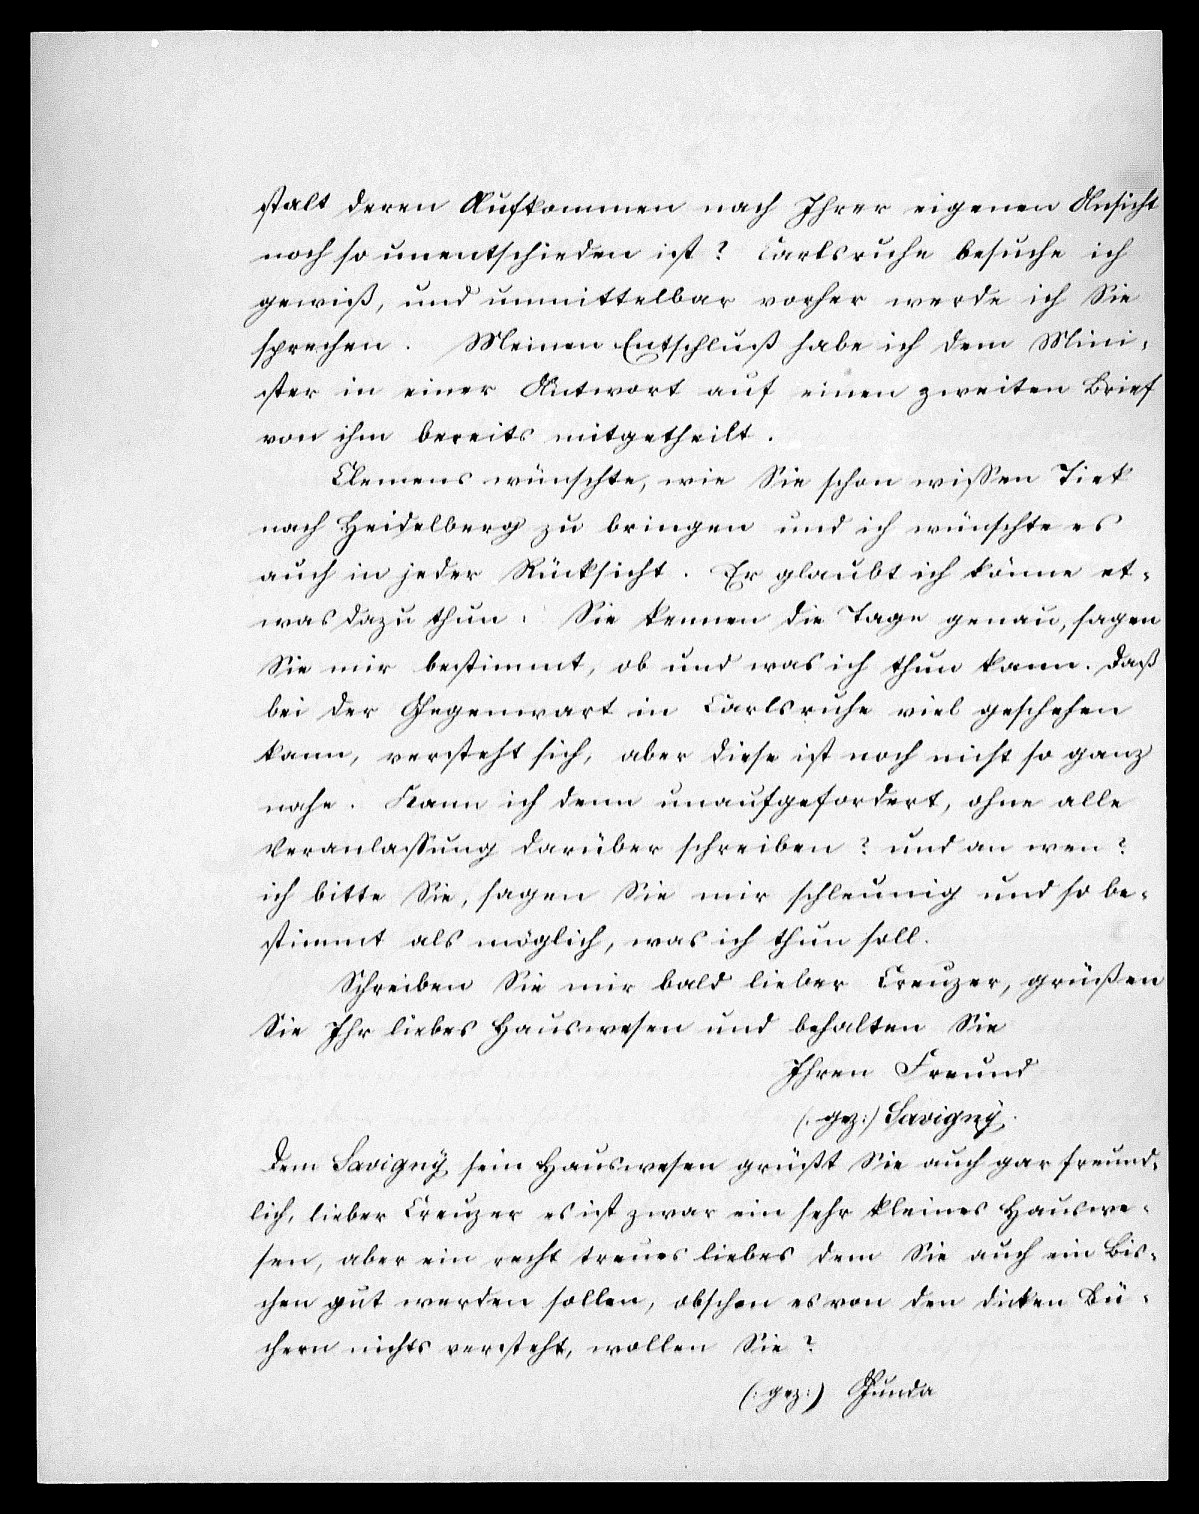 stalt deren Aufkommen nach Ihrer eigenen Ansicht
noch so unentschieden ist? Carlsruhe besuche ich
gewiß, und unmittelbar vorher werde ich Sie
sprechen. Meinen Entschluß habe ich dem Mini-
ster in einer Antwort auf einen zweiten Brief
von ihm bereits mitgetheilt.
Clemens wünschte, wie Sie schon wissen Tiek
nach Heidelberg zu bringen und ich wünschte es
auch in jeder Rücksicht. Er glaubt ich könne et-
was dazu thun. Sie kennen die Tage genau, sagen
Sie mir bestimmt, ob und was ich thun kann. Daß
bei der Gegenwart in Carlsruhe viel geschehen
kann, versteht sich, aber diese ist noch nicht so ganz
nahe. Kann ich denn unaufgefordert, ohne alle
Veranlassung darüber schreiben? und an wen?
ich bitte Sie, sagen Sie mir schleunig und so be-
stimmt als möglich, was ich thun soll.
Schreiben Sie mir bald lieber Creuzer, grüßen
Sie Ihr liebes Hauswesen und behalten Sie
Ihren Freund
(: gez:) Savigny.
Dem Savigny sein Hauswesen grüßt Sie auch gar freund-
lich, lieber Creuzer es ist zwar ein sehr kleines Hauswe-
sen, aber ein recht treues liebes dem Sie auch ein Bis-
chen gut werden sollen, obschon es von den dicken Bü-
chern nichts versteht, wollen Sie?
(: gez:) Gunda